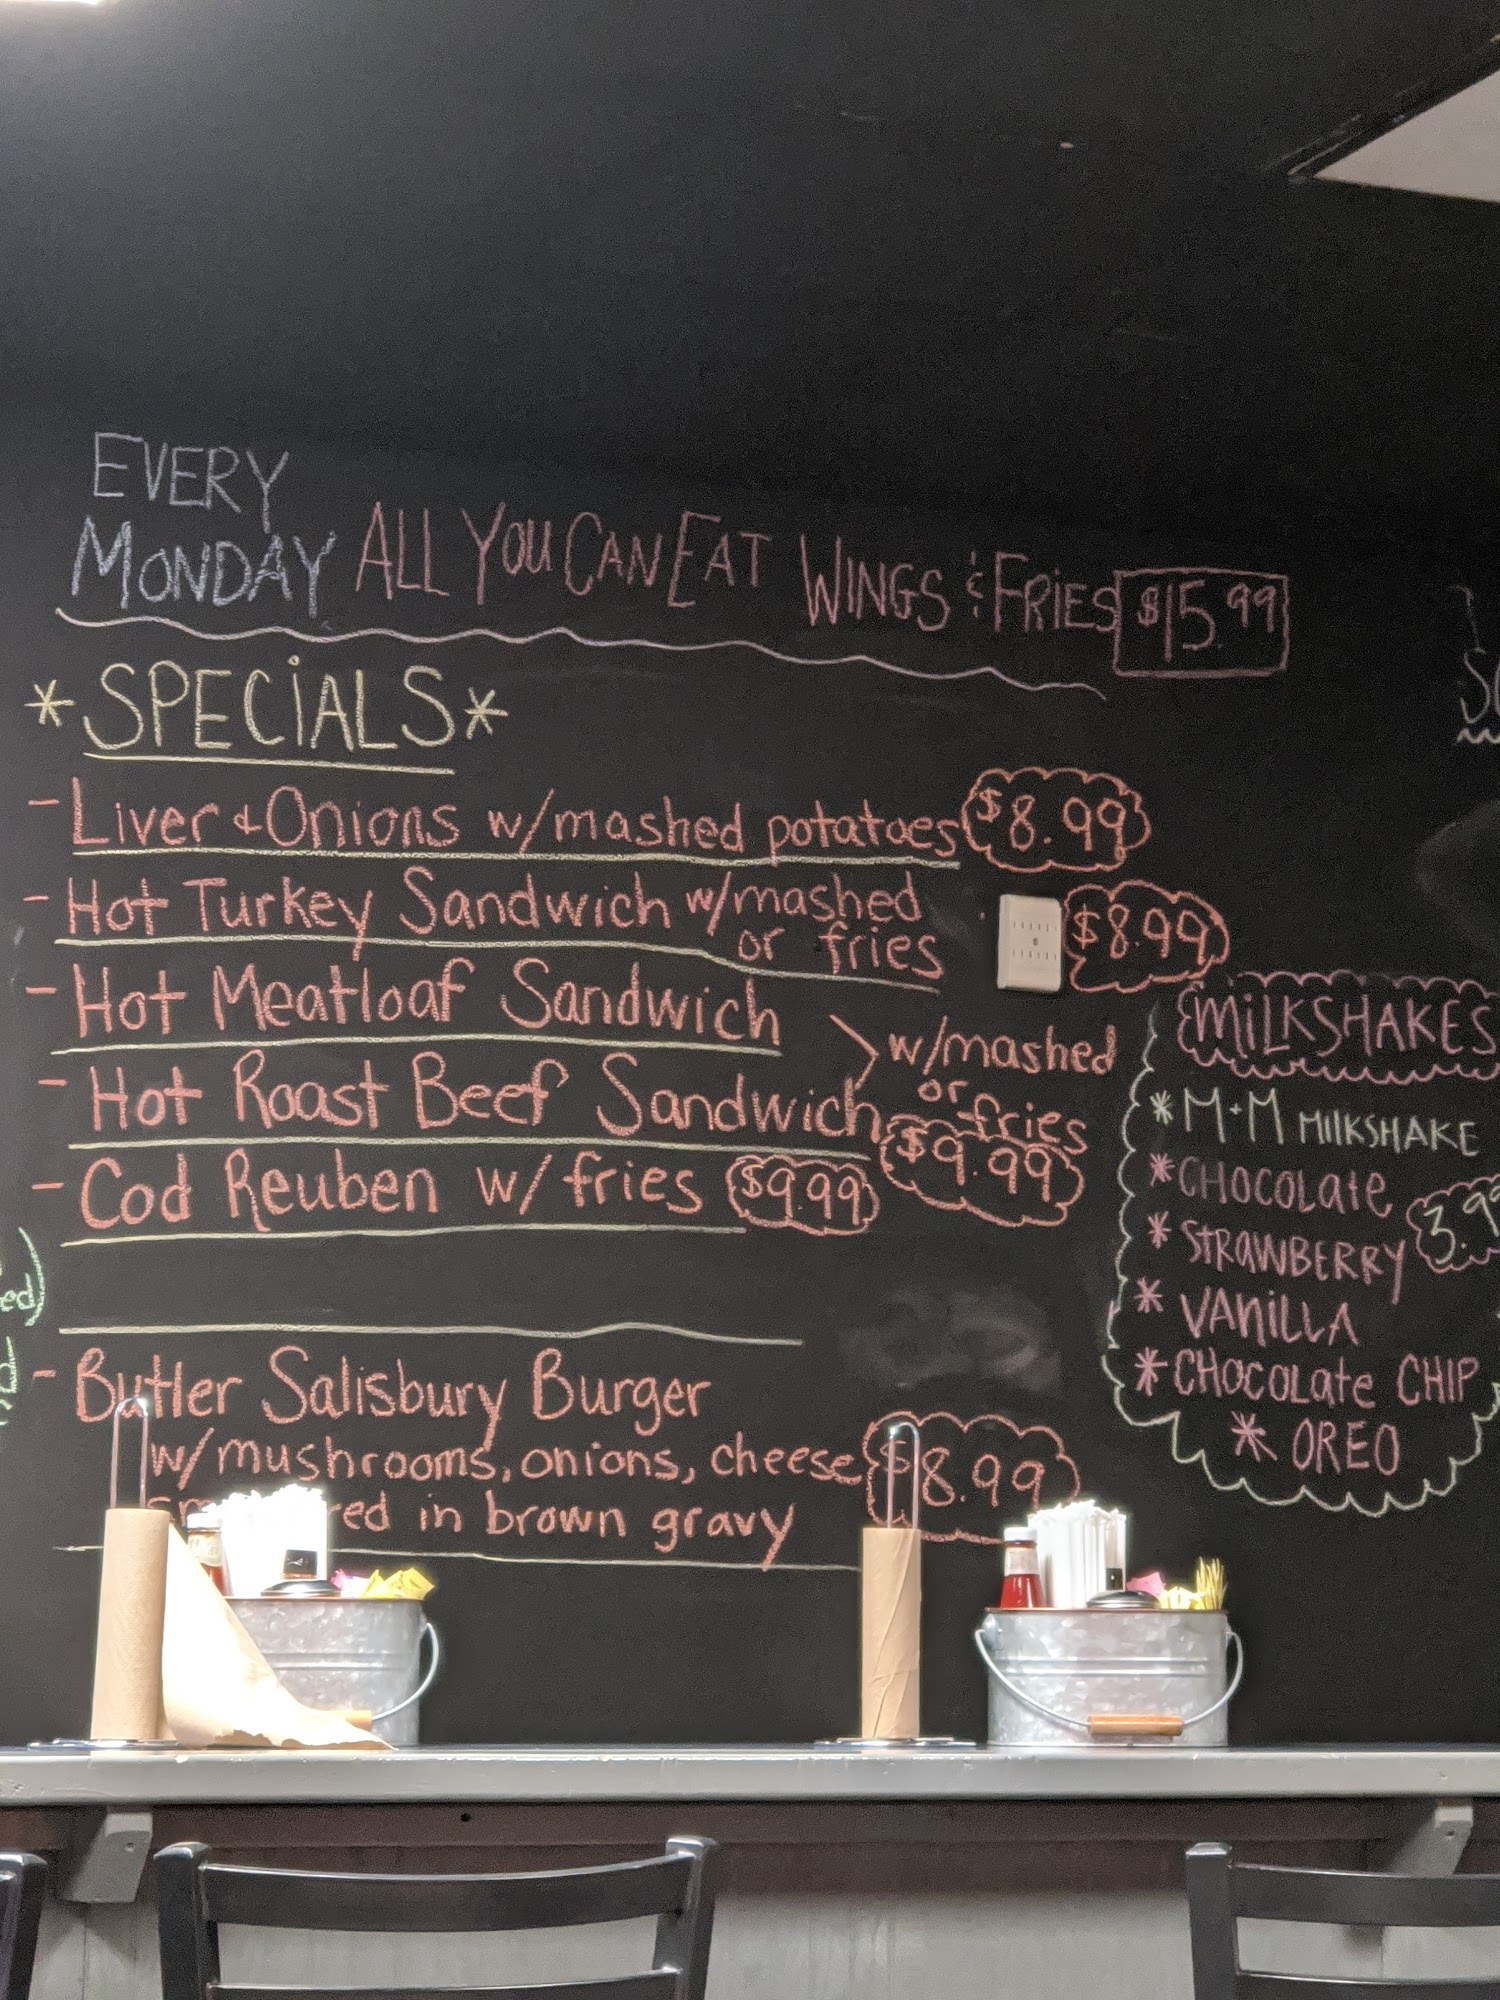 EVERY
MONDAY ALL YOU CAN EAT WINGS & FRIES $15.99
*SPECIALS*
- Liver & Onions w/mashed potatoes $8.99
- Hot Turkey Sandwich w/mashed
or fries $8.99
- Hot Meatloaf Sandwich
- Hot Roast Beef Sandwich
w/mashed
or fries
$9.99
- Cod Reuben w/ fries $9.99
- Butler Salisbury Burger
w/mushrooms, onions, cheese $8.99
in brown gravy
MILKSHAKES
* M+M MILKSHAKE
* CHOCOLATE
* STRAWBERRY
* VANILLA
* CHOCOLATE CHIP
* OREO